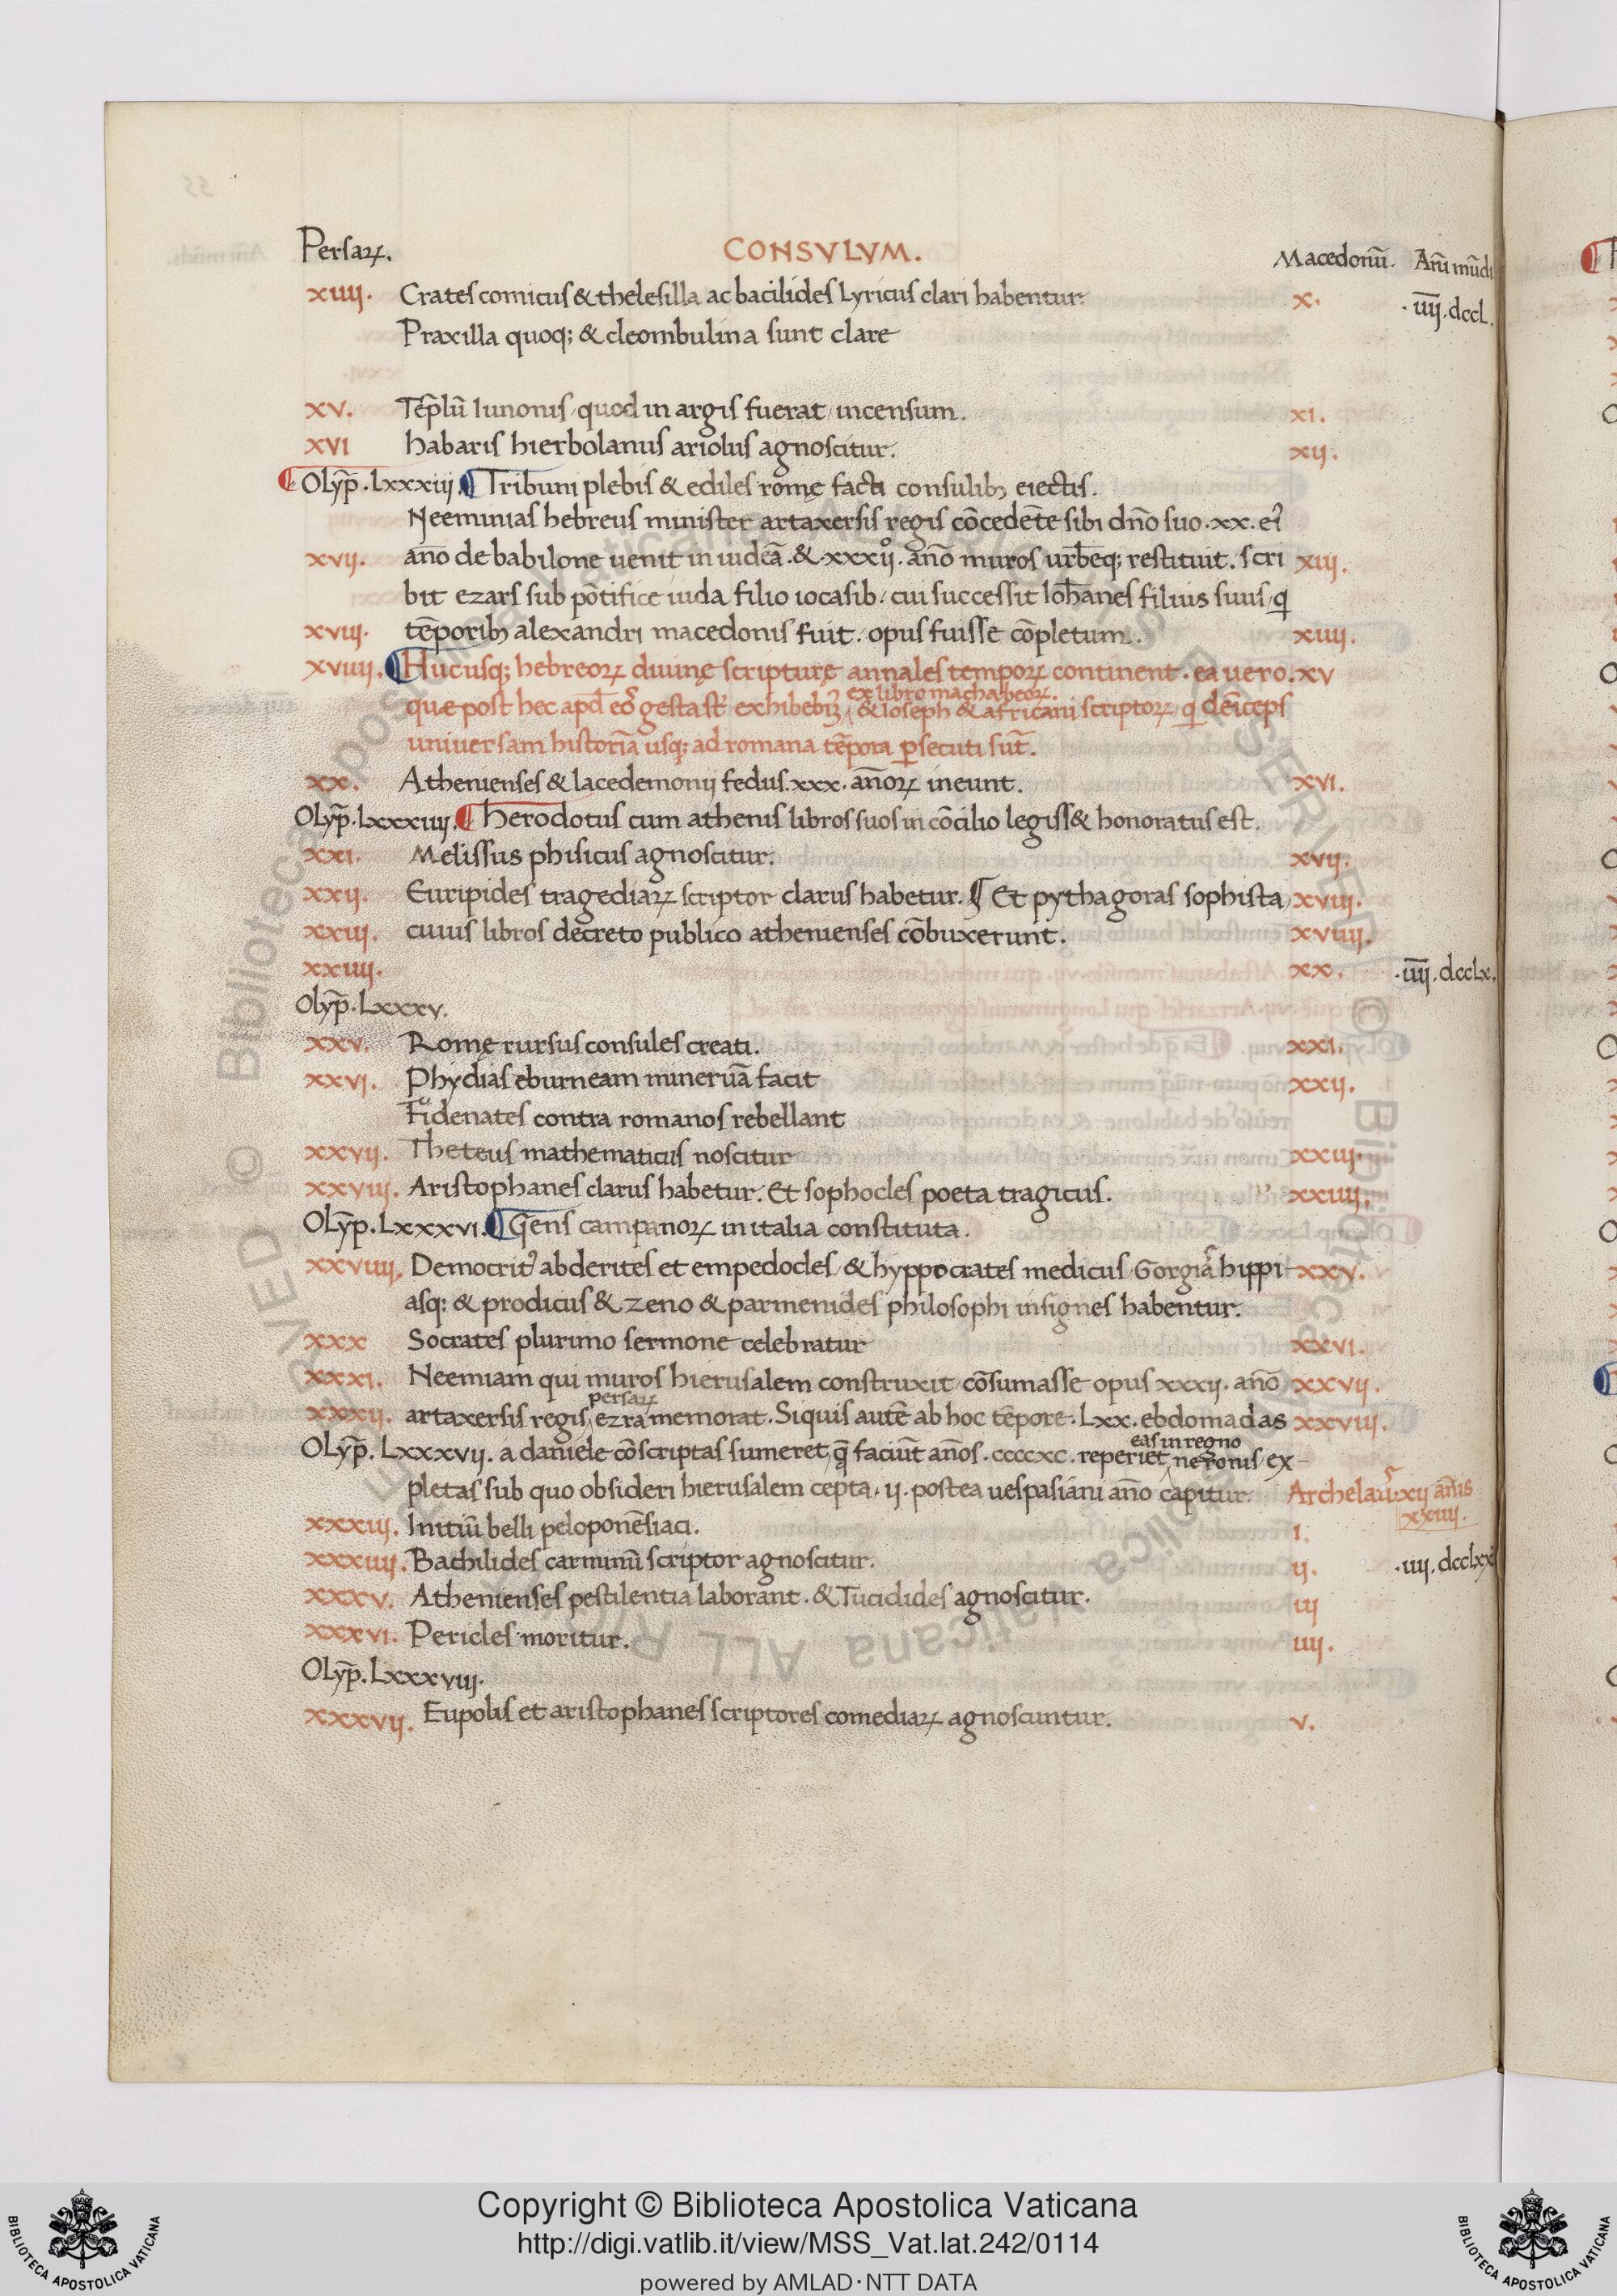 Persaꝝ. CONSVLVM. Macedoniū. Anī mūdi
xiiij. Crates comicus & thelesilla ac bacilides Lyricus clari habentur. x. .iiij. dccl.
Praxilla quoq; & cleombulina sunt clare
xv. Tēplū Iunonis quod in argis fuerat incensum. xi.
xvi habaris hierbolanus ariolus agnoscitur. xij.
Olyp̄. Lxxxiij. ¶ Tribuni plebis & ediles romę facti consulib; eiectis.
Neeminias hebreus minister artaxersis regis cōcedēte sibi dn̄o suo .xx. ei᾽
xvij. an̄o de babilone uenit in iudeā. & .xxxijº. an̄o muros urbēq; restituit. scri xiij.
bit ezars sub pōtifice iuda filio iocasib. cui successit Ioh̄anes filius suus, q
xviij. tēporib; alexandri macedonis fuit. opus fuisse cōpletum. xiiij.
xviiij. ¶ Hucusq; hebreoꝝ diuinę scripturę annales tempoꝝ continent. ea uero. xv
ex libro machabeoꝝ.
que post hec apd̄ eos gesta st̄ exhibebim᾽ & Ioseph & africani scriptoꝝ q deīceps
uniuersam historiā usq; ad romana tēpora ꝑsecuti sūt.
xx. Athenienses & lacedemonij fedus .xxx. an̄oꝝ ineunt. xvi.
Olyp̄. Lxxxiiij. ¶ herodotus cum athenis libros suos in cōcilio legiss& honoratus est.
xxi. Melissus phisicus agnoscitur. xvij.
xxij. Euripides tragediaꝝ scriptor clarus habetur. ¶ Et pythagoras sophista xviij.
xxiij. cuius libros decreto publico athenienses cōbuxerunt. xviiij.
xxiiij. xx. .iiij. dcclx.
Olyp̄. Lxxxv.
xxv. Romę rursus consules creati. xxi.
xxvi. Phydias eburneam mineruā facit xxij.
Fidenates contra romanos rebellant
xxvij. Theteus mathematicus noscitur xxiij.
xxviij. Aristophanes clarus habetur. Et sophocles poeta tragicus. xxiiij.
Olȳp. Lxxxvi. ¶ Gens campanoꝝ in italia constituta.
xxviiij. Democrit᾽ abderites et empedocles & hyppocrates medicus Gorgiās hippi xxv.
asq; & prodicus & zeno & parmenides philosophi insignes habentur.
xxx Socrates plurimo sermone celebratur xxvi.
xxxi. Neemiam qui muros hierusalem construxit cōsumasse opus xxxij. an̄o xxvij.
persaꝝ
xxxij. artaxersis regis ezra memorat. Siquis autē ab hoc tēpore. Lxx. ebdomadas xxviij.
eas in regno
Olyp̄. Lxxxvij. a daniele cōscriptas sumeret, q̄ faciūt an̄os. ccccxc. reperiet neronis ex
pletas sub quo obsideri hierusalem cepta, ij. postea uespasiani an̄o capitur. Archelaūs xij an̄is
xxiiij.
xxxiij. Initiū belli peloponēsiaci. i.
xxxiiij. Bachilides carminū scriptor agnoscitur. ij. .iiij. dcclxx
xxxv. Athenienses pestilentia laborant. & Tucidides agnoscitur. iij
xxxvi. Pericles moritur. iiij.
Olyp̄. Lxxxviij.
xxxvij. Eupolis et aristophanes scriptores comediaꝝ agnoscuntur. v.
Copyright © Biblioteca Apostolica Vaticana
http://digi.vatlib.it/view/MSS_Vat.lat.242/0114
powered by AMLAD·NTT DATA
BIBLIOTECA APOSTOLICA VATICANA
BIBLIOTECA APOSTOLICA VATICANA